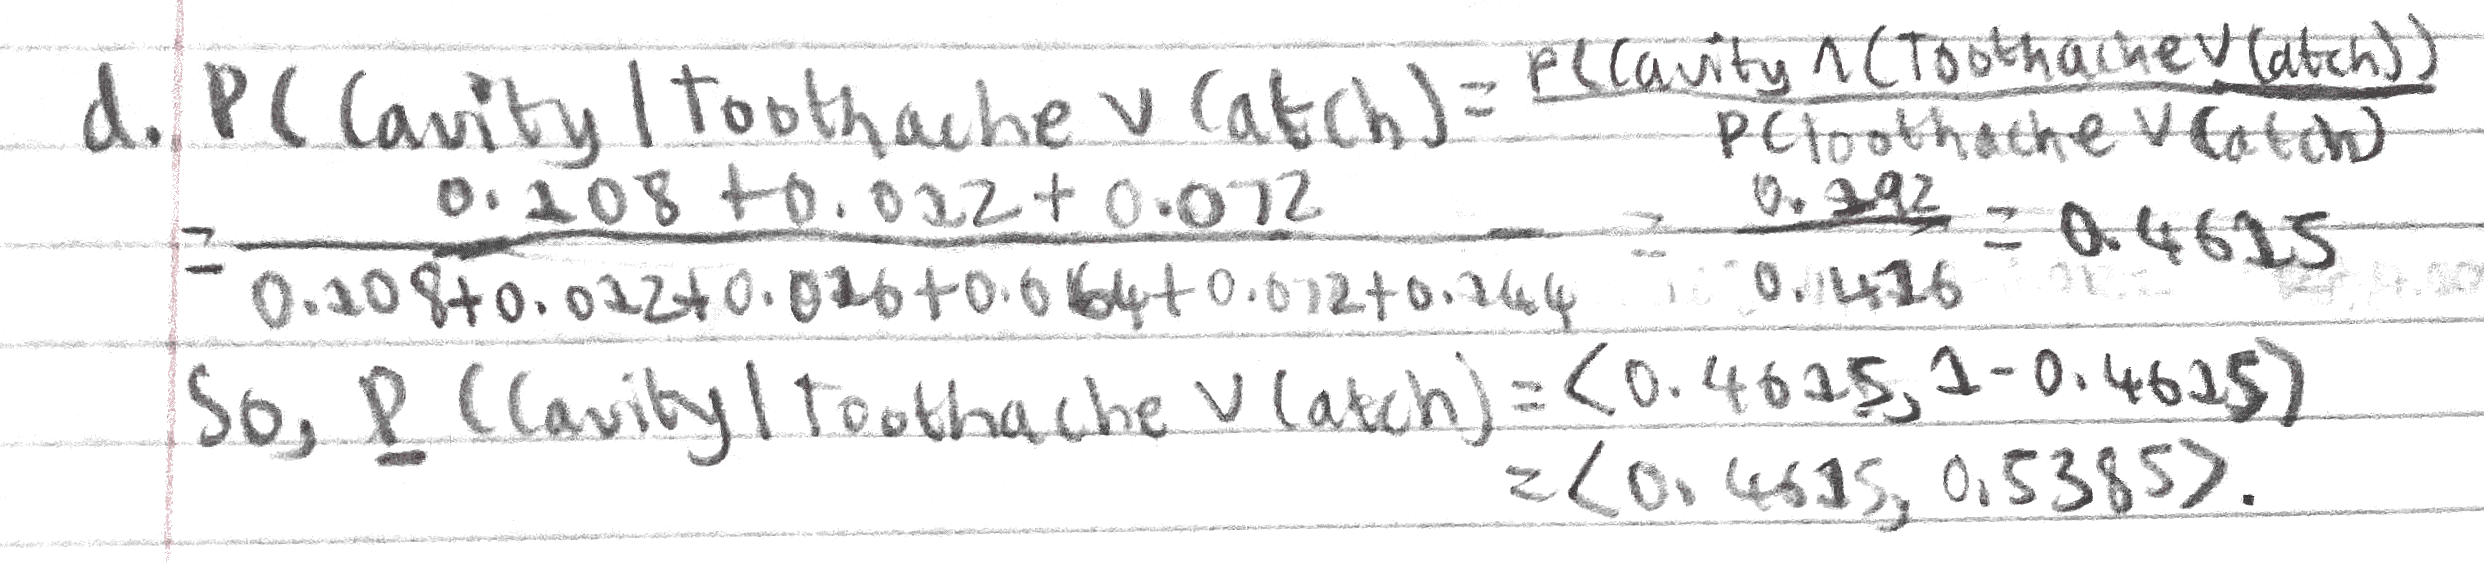 d. P(Cavity | Toothache ∨ Catch) = P(Cavity ∧ (Toothache ∨ Catch)) / P(Toothache ∨ Catch)
= (0.108 + 0.012 + 0.072) / (0.108 + 0.012 + 0.016 + 0.064 + 0.072 + 0.144) = 0.192 / 0.416 = 0.4615
So, P (Cavity | Toothache ∨ Catch) = ⟨0.4615, 1 - 0.4615⟩
= ⟨0.4615, 0.5385⟩.